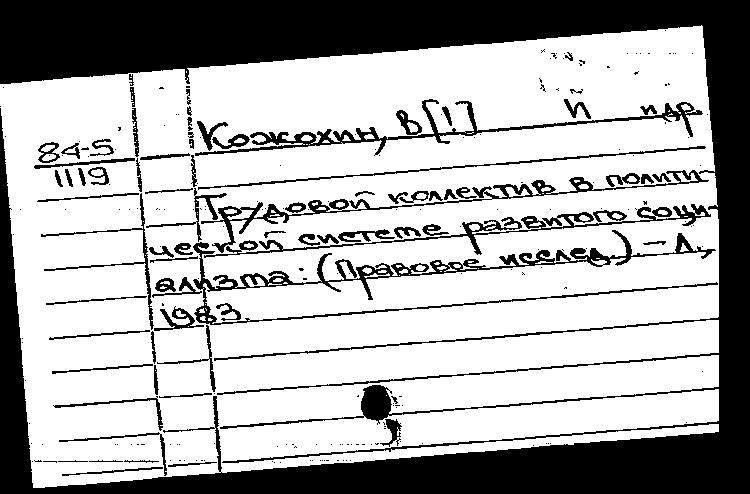 84-5
1119
Кожохин, В[!] Й и др.
Трудовой коллектив в полити-
ческой системе развитого соци-
ализма: (Правовое исслед.) – Л.,
1983.